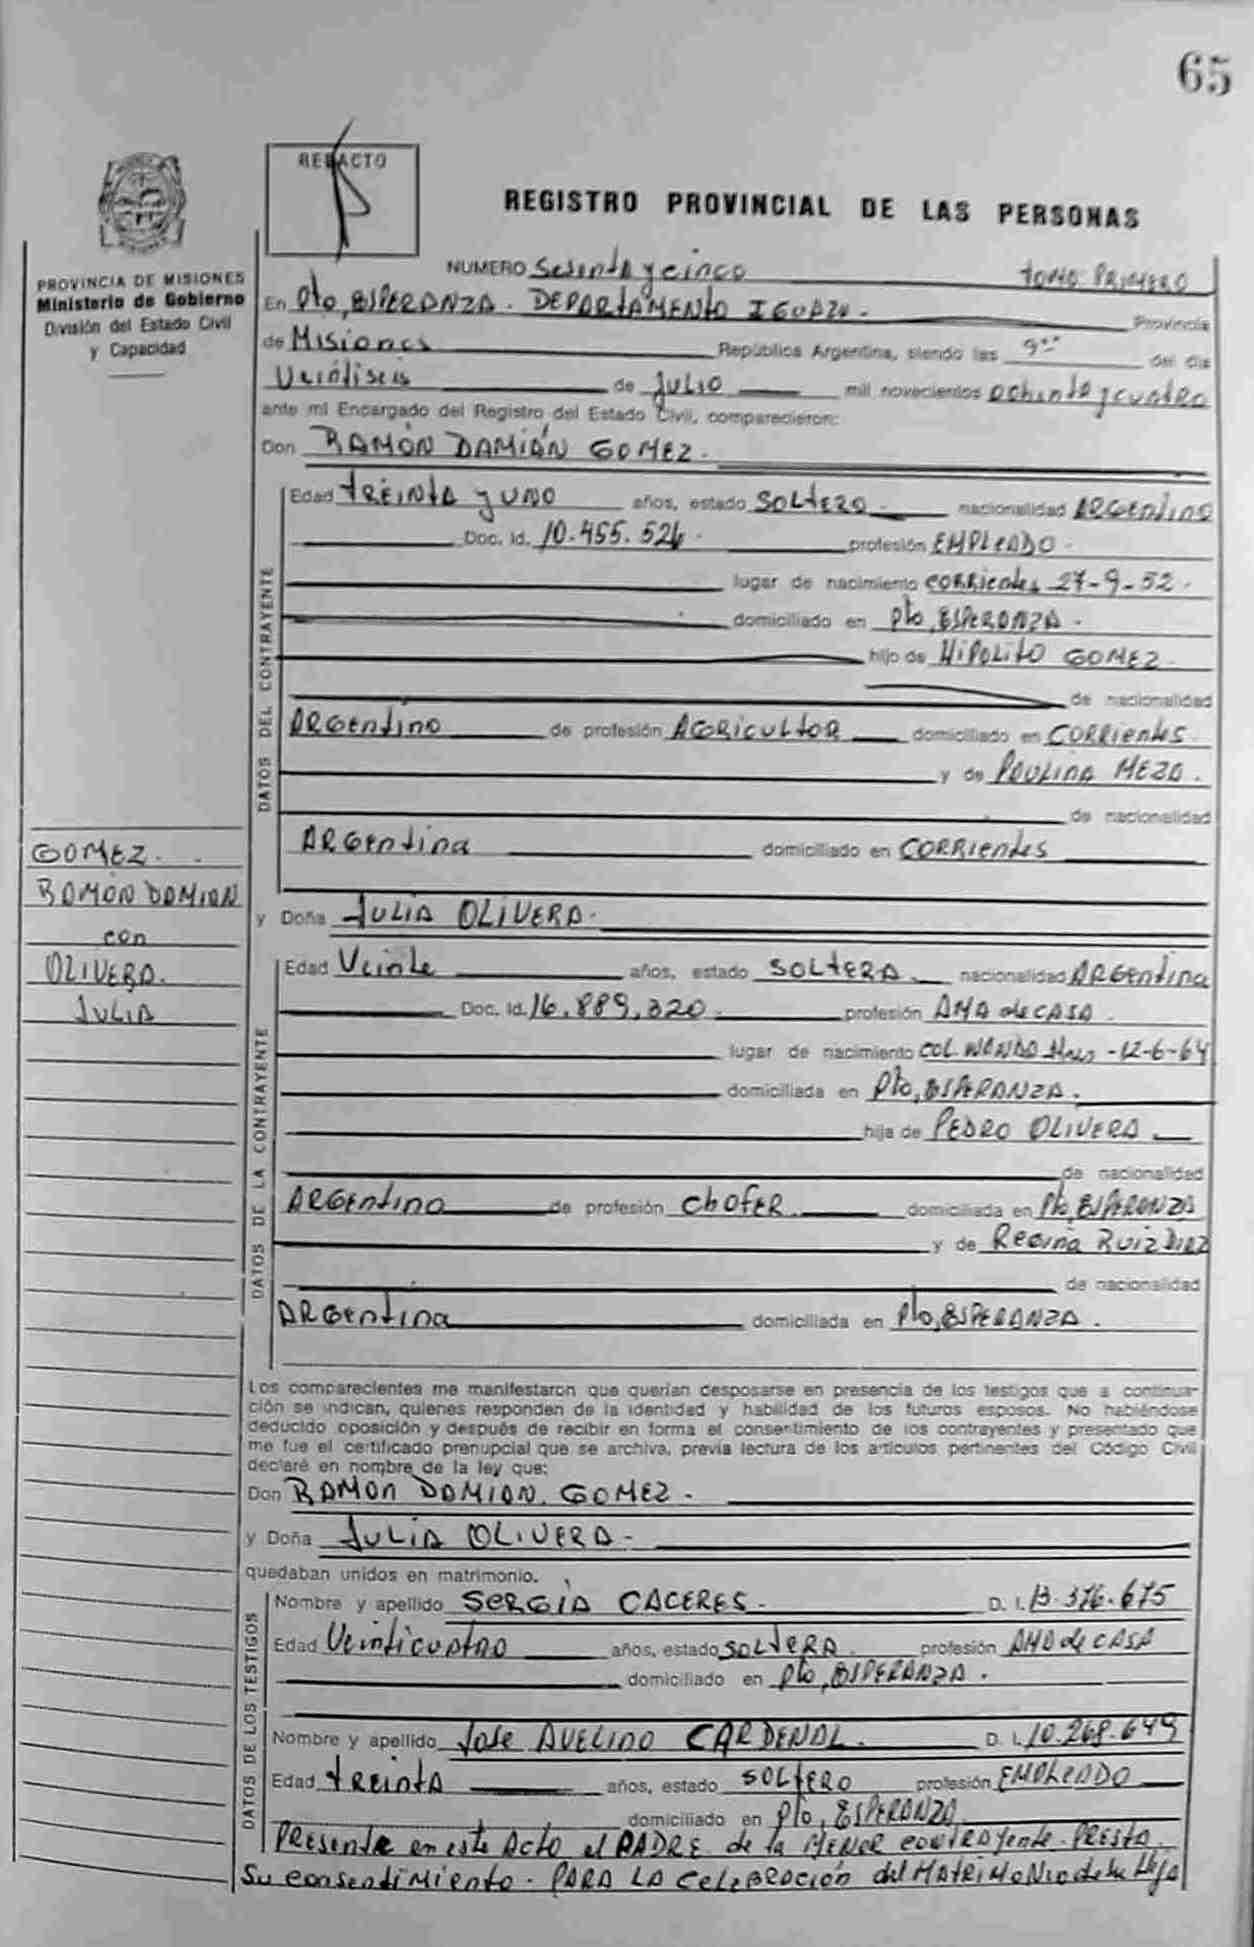 65
REDACTO
REGISTRO PROVINCIAL DE LAS PERSONAS
PROVINCIA DE MISIONES
Ministerio de Gobierno
División del Estado Civil
y Capacidad
NUMERO Sesenta y cinco tomo PRIMERO
En Pto, ESPERANZA. DEPARTAMENTO IGUAZU. Provincia
de Misiones República Argentina, siendo las 9 del día
Veintiseis de Julio mil novecientos ochenta y cuatro
ante mí Encargado del Registro del Estado Civil, comparecieron:
Don RAMÓN DAMIÁN GOMEZ.
DATOS DEL CONTRAYENTE
Edad treinta y uno años, estado SOLTERO nacionalidad ARGENTINO
Doc. Id. 10.455.526. profesión EMPLEADO.
lugar de nacimiento corrientes 27-9-52.
domiciliado en Pto, ESPERANZA.
hijo de HIPOLITO GOMEZ.
de nacionalidad
ARGENTINO de profesión AGRICULTOR domiciliado en CORRIENTES
y de PAULINA MEZA.
de nacionalidad
ARGENTINA domiciliado en CORRIENTES
GOMEZ.
RAMÓN DAMIAN
con
OLIVERA.
JULIA
y Doña JULIA OLIVERA.
DATOS DE LA CONTRAYENTE
Edad Veinte años, estado SOLTERA. nacionalidad ARGENTINA
Doc. Id. 16.889.320. profesión AMA de CASA.
lugar de nacimiento COL WANDA -12-6-64
domiciliada en Pto, ESPERANZA.
hija de PEDRO OLIVERA
de nacionalidad
ARGENTINO de profesión CHOFER domiciliada en Pto, ESPERANZA
y de Regina RUIZ DIAZ
de nacionalidad
ARGENTINA domiciliada en Pto, ESPERANZA.
Los comparecientes me manifestaron que querían desposarse en presencia de los testigos que a continua-
ción se indican, quienes responden de la identidad y habilidad de los futuros esposos. No habiéndose
deducido oposición y después de recibir en forma el consentimiento de los contrayentes y presentado que
me fue el certificado prenupcial que se archiva, previa lectura de los artículos pertinentes del Código Civil
declaré en nombre de la ley que:
Don RAMON DAMIAN. GOMEZ.
y Doña JULIA OLIVERA.
quedaban unidos en matrimonio.
DATOS DE LOS TESTIGOS
Nombre y apellido SERGIA CACERES. D. I. 13.376.675
Edad Veinticuatro años, estado SOLTERA. profesión AMA de CASA
domiciliado en Pto, ESPERANZA.
Nombre y apellido José AVELINO CARDENAL. D. I. 10.268.649
Edad treinta años, estado SOLTERO profesión EMPLEADO
domiciliado en Pto, ESPERANZA
PRESENTE en este Acto el PADRE de la MENOR contrayente. PRESTA
Su consentimiento. PARA LA celebración del MATRIMONIO de su Hija